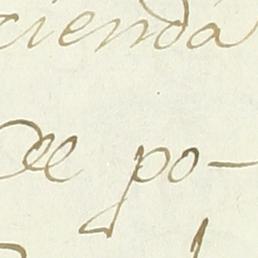 cienda
De po-